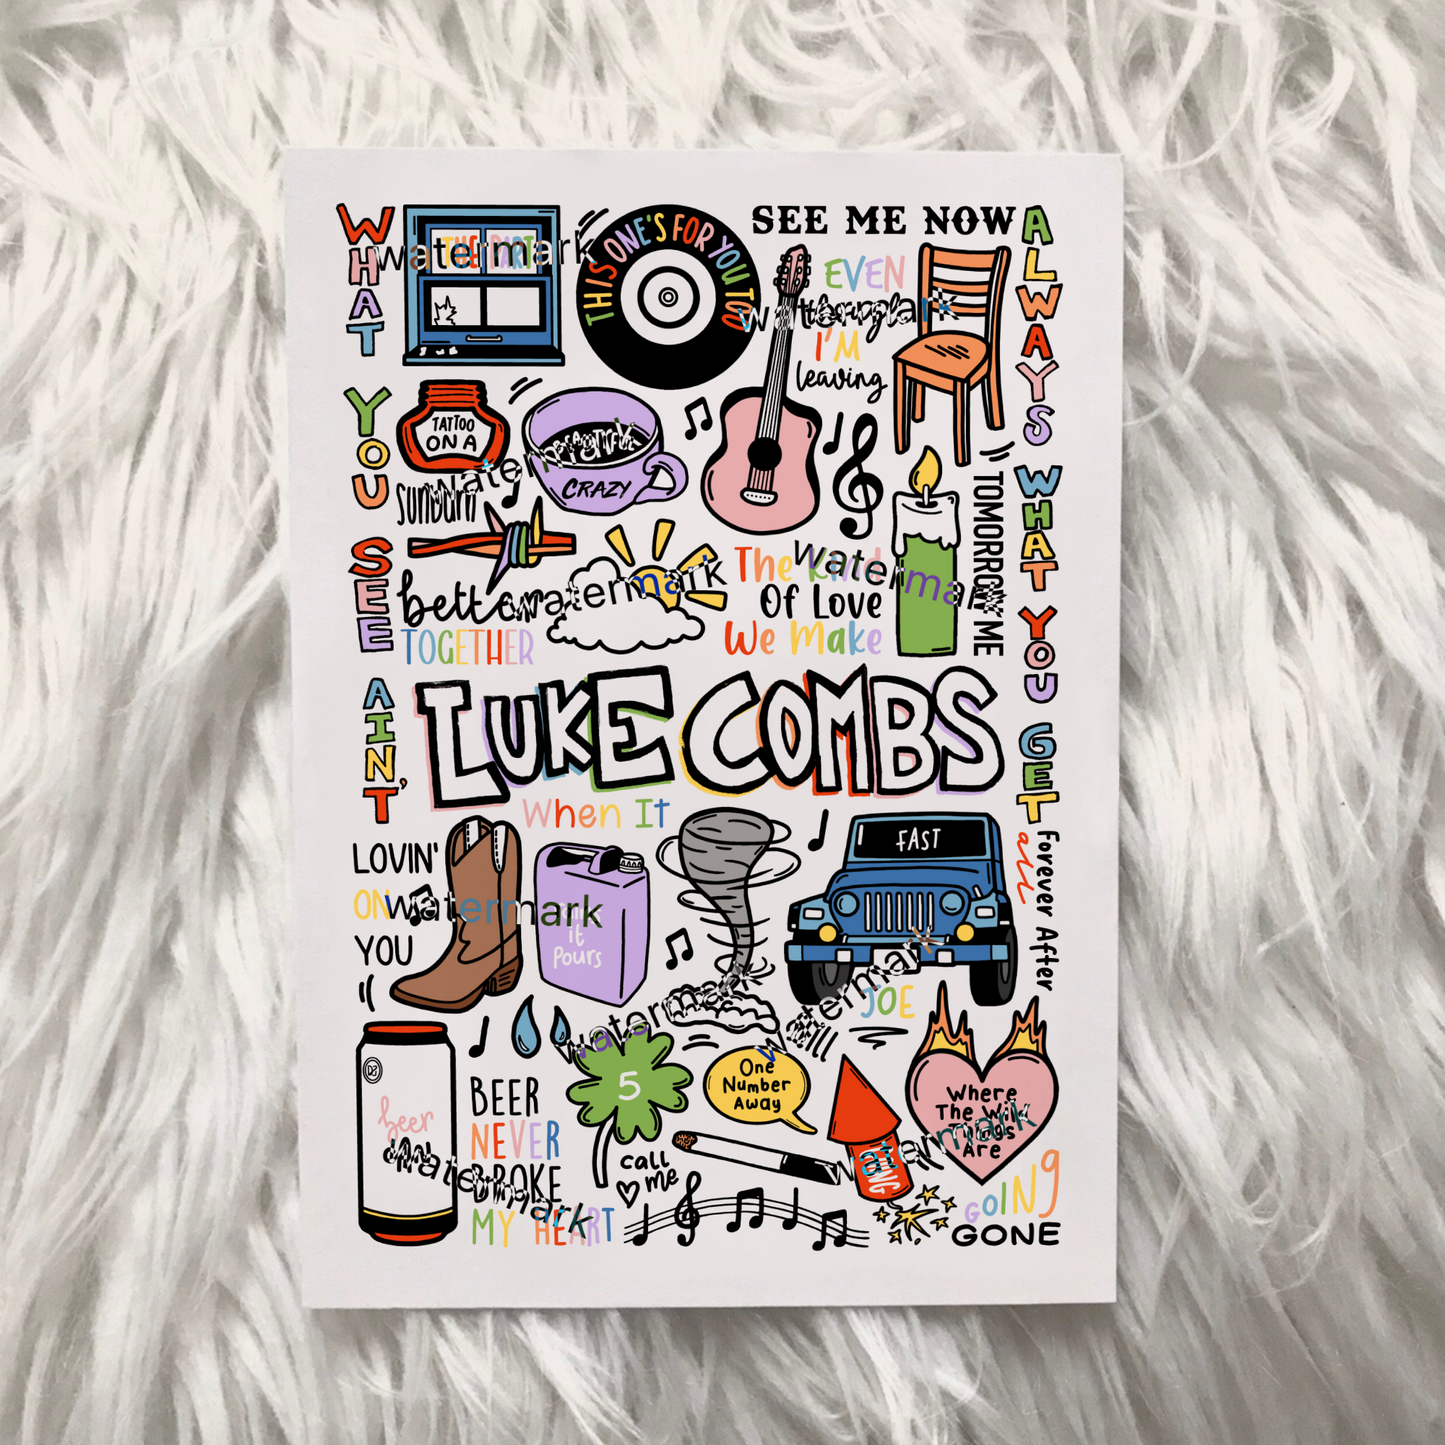 WHAT
YOU
SEE
AIN'T
THE PART
watermark
THIS ONE'S FOR YOU TOO
SEE ME NOW
EVEN
watermark
I'M
leaving
ALWAYS
WHAT
YOU
GET
TATTOO
ON A
sunburn
watermark
CRAZY
BEAUTIFUL
better
TOGETHER
watermark
The Kind
Of Love
We Make
watermark
TOMORROW ME
LUKE COMBS
When It
LOVIN'
ON
YOU
watermark
it
Pours
FAST
Forever After
all
JOE
watermark
watermark
beer
watermark
BEER
NEVER
BROKE
MY HEART
5
call
me
One
Number
Away
Where
The Wild
Things
Are
watermark
GOING
GONE